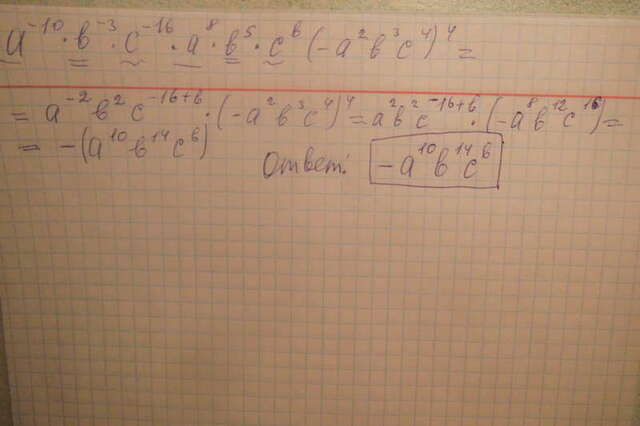 a⁻¹⁰ · b⁻³ · c⁻¹⁶ · a⁸ · b⁵ · cᵇ (-a²b³c⁴)⁴ =
= a⁻²b²c⁻¹⁶⁺ᵇ · (-a²b³c⁴)⁴ = a²b²c⁻¹⁶⁺ᵇ · (-a⁸b¹²c¹⁶) =
= -(a¹⁰b¹⁴cᵇ) Ответ: -a¹⁰b¹⁴cᵇ